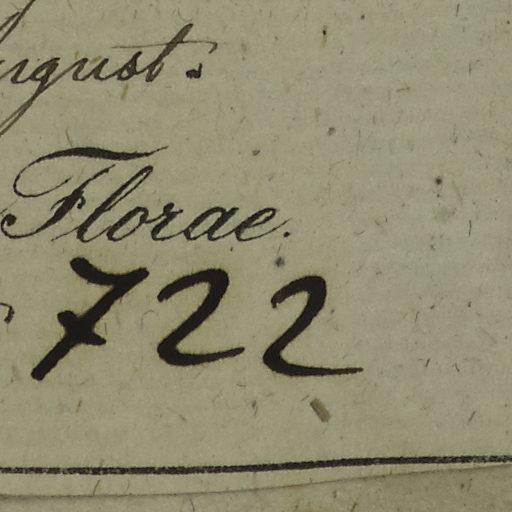 august.
Florae.
722